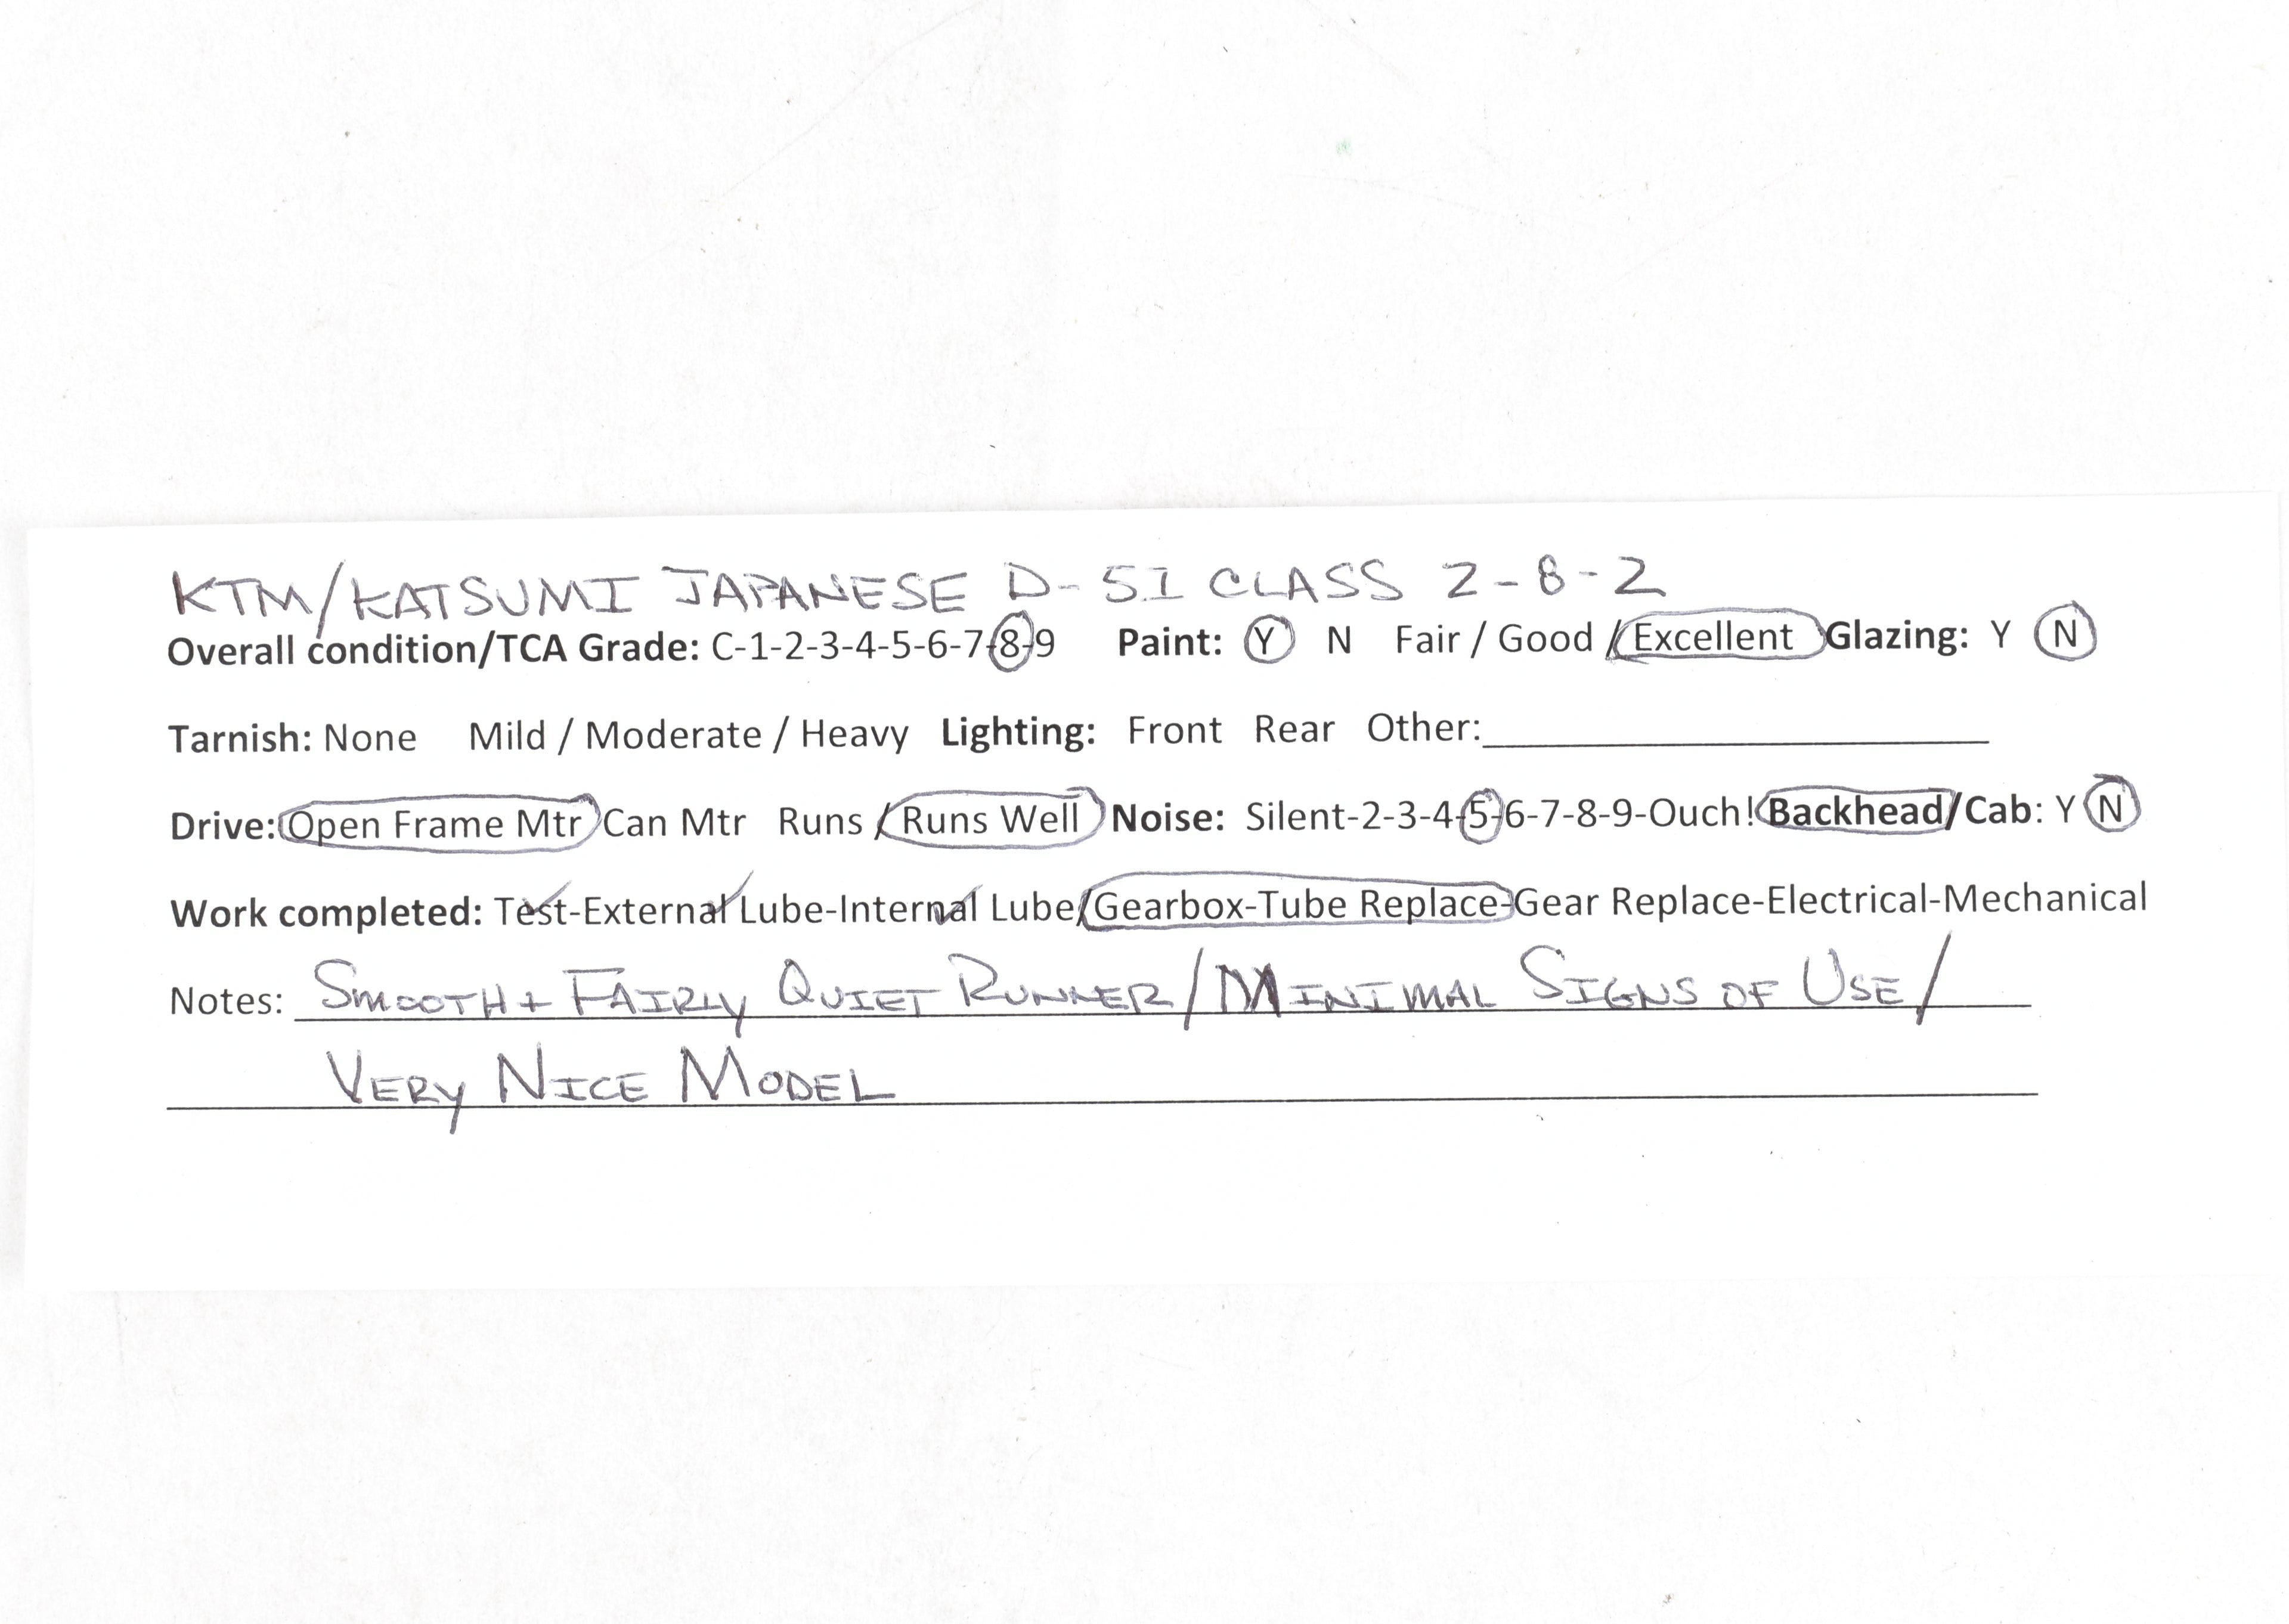 KTM/KATSUMI JAPANESE D-51 CLASS 2-8-2
Overall condition/TCA Grade: C-1-2-3-4-5-6-7-8-9 Paint: Y N Fair / Good / Excellent Glazing: Y N
Tarnish: None Mild / Moderate / Heavy Lighting: Front Rear Other:
Drive: Open Frame Mtr Can Mtr Runs / Runs Well Noise: Silent-2-3-4-5-6-7-8-9-Ouch! Backhead/Cab: Y N
Work completed: Test-External Lube-Internal Lube/Gearbox-Tube Replace-Gear Replace-Electrical-Mechanical
Notes: SMOOTH + FAIRLY QUIET RUNNER/MINIMAL SIGNS OF USE/
VERY NICE MODEL